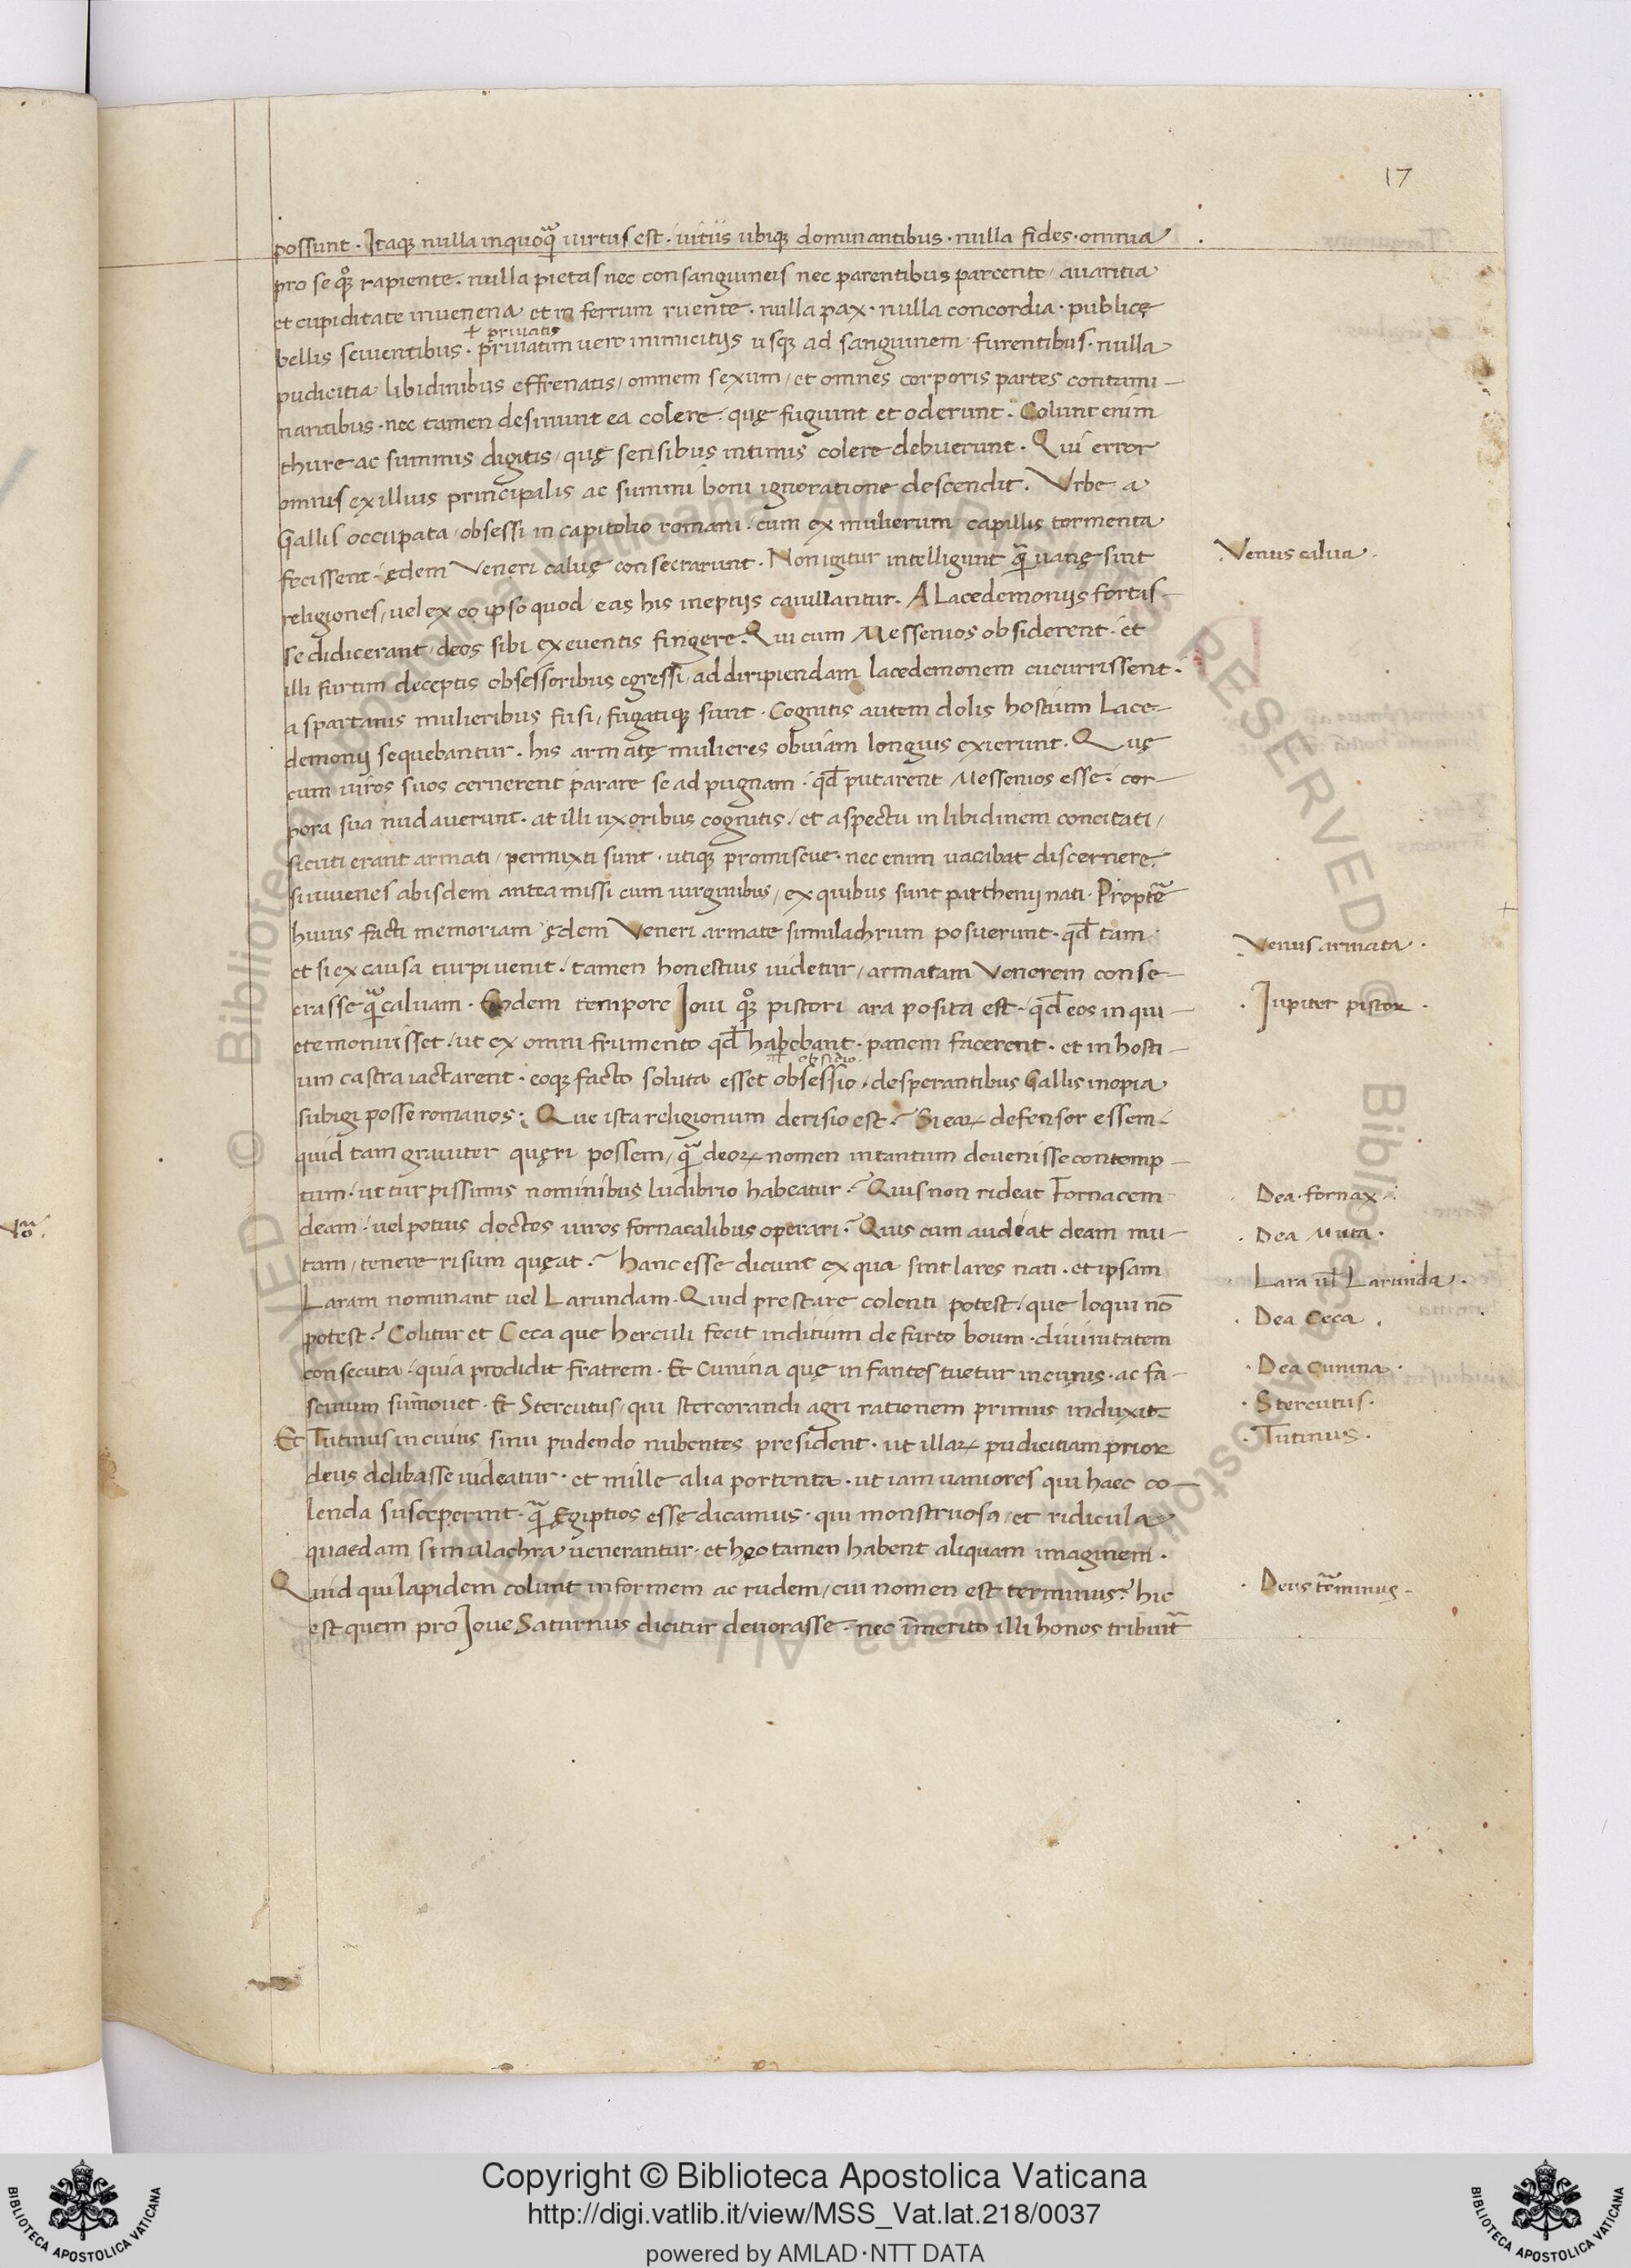 17
possunt . Itaq; nulla in quoq̃ uirtus est . uitiis ubiq; dominantibus . nulla fides . omnia
pro se qͦ; rapiente . nulla pietas nec consanguineis nec parentibus parcente / auaritia
et cupiditate in uenena et in ferrum ruente . nulla pax . nulla concordia . publicę
+ priuatis
bellis seuientibus . priuatim uero inimicitijs usq; ad sanguinem furentibus . nulla
pudicitia libidinibus effrenatis / omnem sexum / et omnes corporis partes contami-
nantibus . nec tamen desinunt ea colere / quę fugiunt et oderunt . Colunt enim
thure ac summis digitis / quę sensibus intimis colere debuerunt . Qui error
omnis ex illius principalis ac summi boni ignoratione descendit . Vrbe a
Gallis occupata / obsessi in capitolio romani . cum ex mulierum capillis tormenta
fecissent . ędem Veneri caluę consecrarunt . Non igitur intelligunt q̃ uanę sint
Venus calua .
religiones / uel ex eo ipso quod eas his ineptijs cauillantur . A Lacedemonijs fortas-
se didicerant / deos sibi ex euentis fingere . Qui cum Messenios obsiderent . et
illi furtim deceptis obsessoribus egressi / ad diripiendam lacedemonem cucurrissent .
a spartanis mulieribus fusi / fugatiq; sunt . Cognitis autem dolis hostium Lace-
demonij sequebantur . his armatę mulieres obuiam longius exierunt . Quę
cum uiros suos cernerent parare se ad pugnam . qđ putarent Messenios esse . cor-
pora sua nudauerunt . at illi uxoribus cognitis / et aspectu in libidinem concitati /
sicuti erant armati / permixti sunt . utiq; promiscue . nec enim uacabat discernere .
si iuuenes ab isdem antea missi cum uirginibus / ex quibus sunt parthenij nati . Propť
huius facti memoriam ędem Veneri armate simulachrum posuerunt . qđ tam
Venus armata .
et si ex causa turpi uenit . tamen honestius uidetur / armatam Venerem conse-
crasse q̃ caluam . Eodem tempore Ioui qͦ; pistori ara posita est . qđ eos in qui-
. Iupiter pistor .
ete monuisset . ut ex omni frumento qđ habebant . panem facerent . et in hosti-
obsidio
um castra iactarent . eoq; facto soluta esset obsessio . desperantibus Gallis inopia
subigi posse romanos . Que ista religionum derisio est ? Si earꝝ defensor essem .
quid tam grauiter quęri possem / q̃ deorꝝ nomen in tantum deuenisse contemp-
tum . ut turpissimis nominibus ludibrio habeatur ? Quis non rideat Fornacem
Dea . fornax .
deam . uel potius doctos uiros fornacalibus operari ? Quis cum audeat deam mu-
. Dea Muta .
tam / tenere risum queat ? hanc esse dicunt ex qua sint lares nati . et ipsam
Laram nominant uel Larundam . Quid prestare colenti potest / que loqui nō
Lara uł Larunda .
potest ? Colitur et Ceca que herculi fecit inditium de furto boum . diuinitatem
. Dea Ceca .
consecuta . quia prodidit fratrem . Et Cunina quę infantes tuetur in cunis . ac fa-
. Dea Cunina .
scinum sūmouet . Et Stercutus / qui stercorandi agri rationem primus induxit
. Stercutus .
Et Tutinus in cuius sinu pudendo nubentes president . ut illarꝝ pudicitiam prior
. Tutinus .
deus delibasse uideatur . et mille alia portenta . ut iam uaniores qui haec co-
lenda susceperint . q̃ Egiptios esse dicamus . qui monstruosa / et ridicula
quaedam simulachra uenerantur . et hęc tamen habent aliquam imaginem .
Quid qui lapidem colunt informem ac rudem / cui nomen est terminus ? hic
. Deus ťminus .
est quem pro Ioue Saturnus dicitur deuorasse . nec īmerito illi honos tribuiť
Copyright © Biblioteca Apostolica Vaticana
http://digi.vatlib.it/view/MSS_Vat.lat.218/0037
powered by AMLAD·NTT DATA
BIBLIOTECA APOSTOLICA VATICANA
BIBLIOTECA APOSTOLICA VATICANA